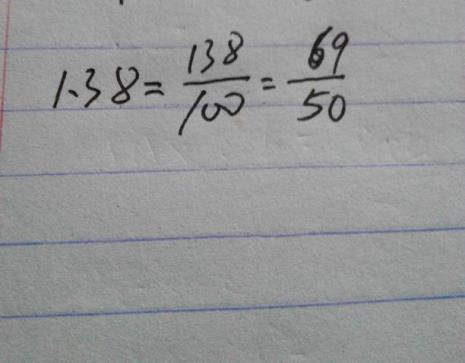 1.38 = 138/100 = 69/50